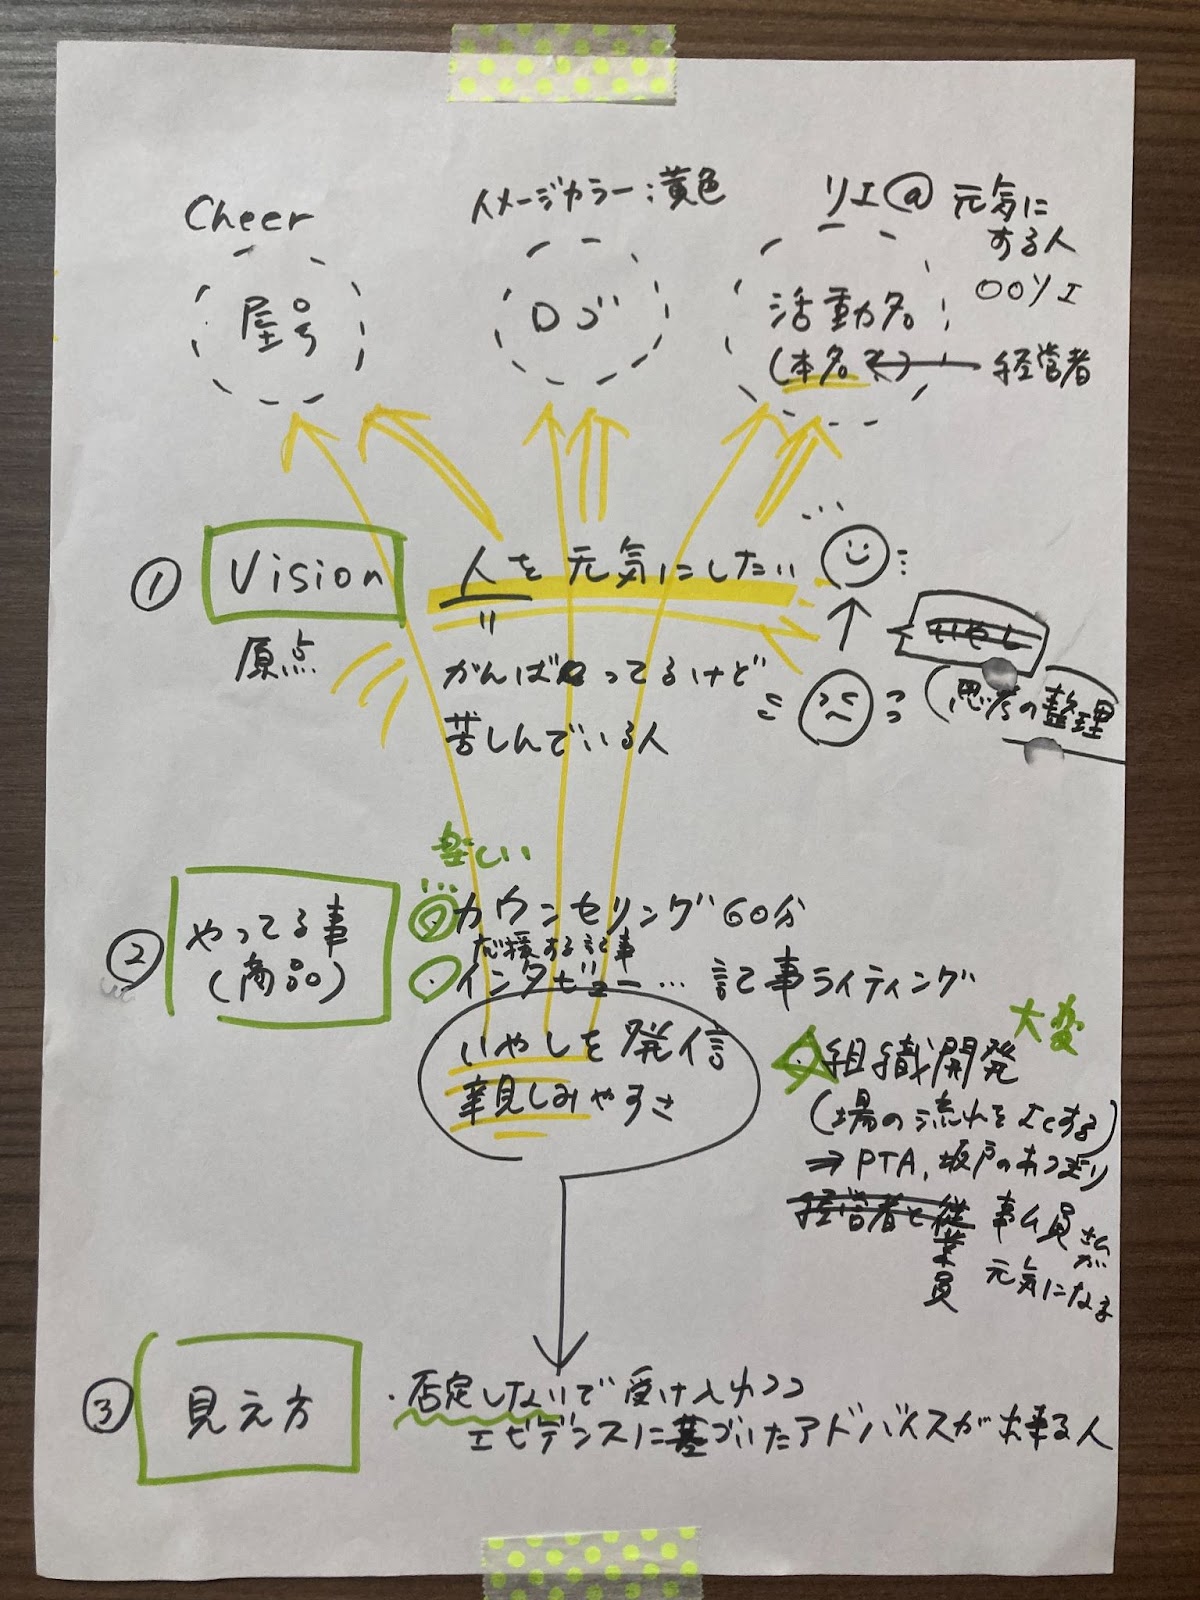 Cheer
屋号
イメージカラー：黄色
ロゴ
リエ@ 元気に
する人
〇〇リエ
活動名
(本名)
経営者
① Vision
原点
人を元気にしたい
がんばってるけど
苦しんでいる人
いやし
思考の整理
② やってる事
(商品)
楽しい
カウンセリング60分
応援する記事
・インタビュー… 記事ライティング
いやしを発信
親しみやすさ
大変
・組織開発
(場の流れをよくする)
⇒PTA、坂戸の
経営者と従業員
事ム員さんが
元気になる
③ 見え方
・否定しないで受け入れつつ
エビデンスに基づいたアドバイスが出来る人